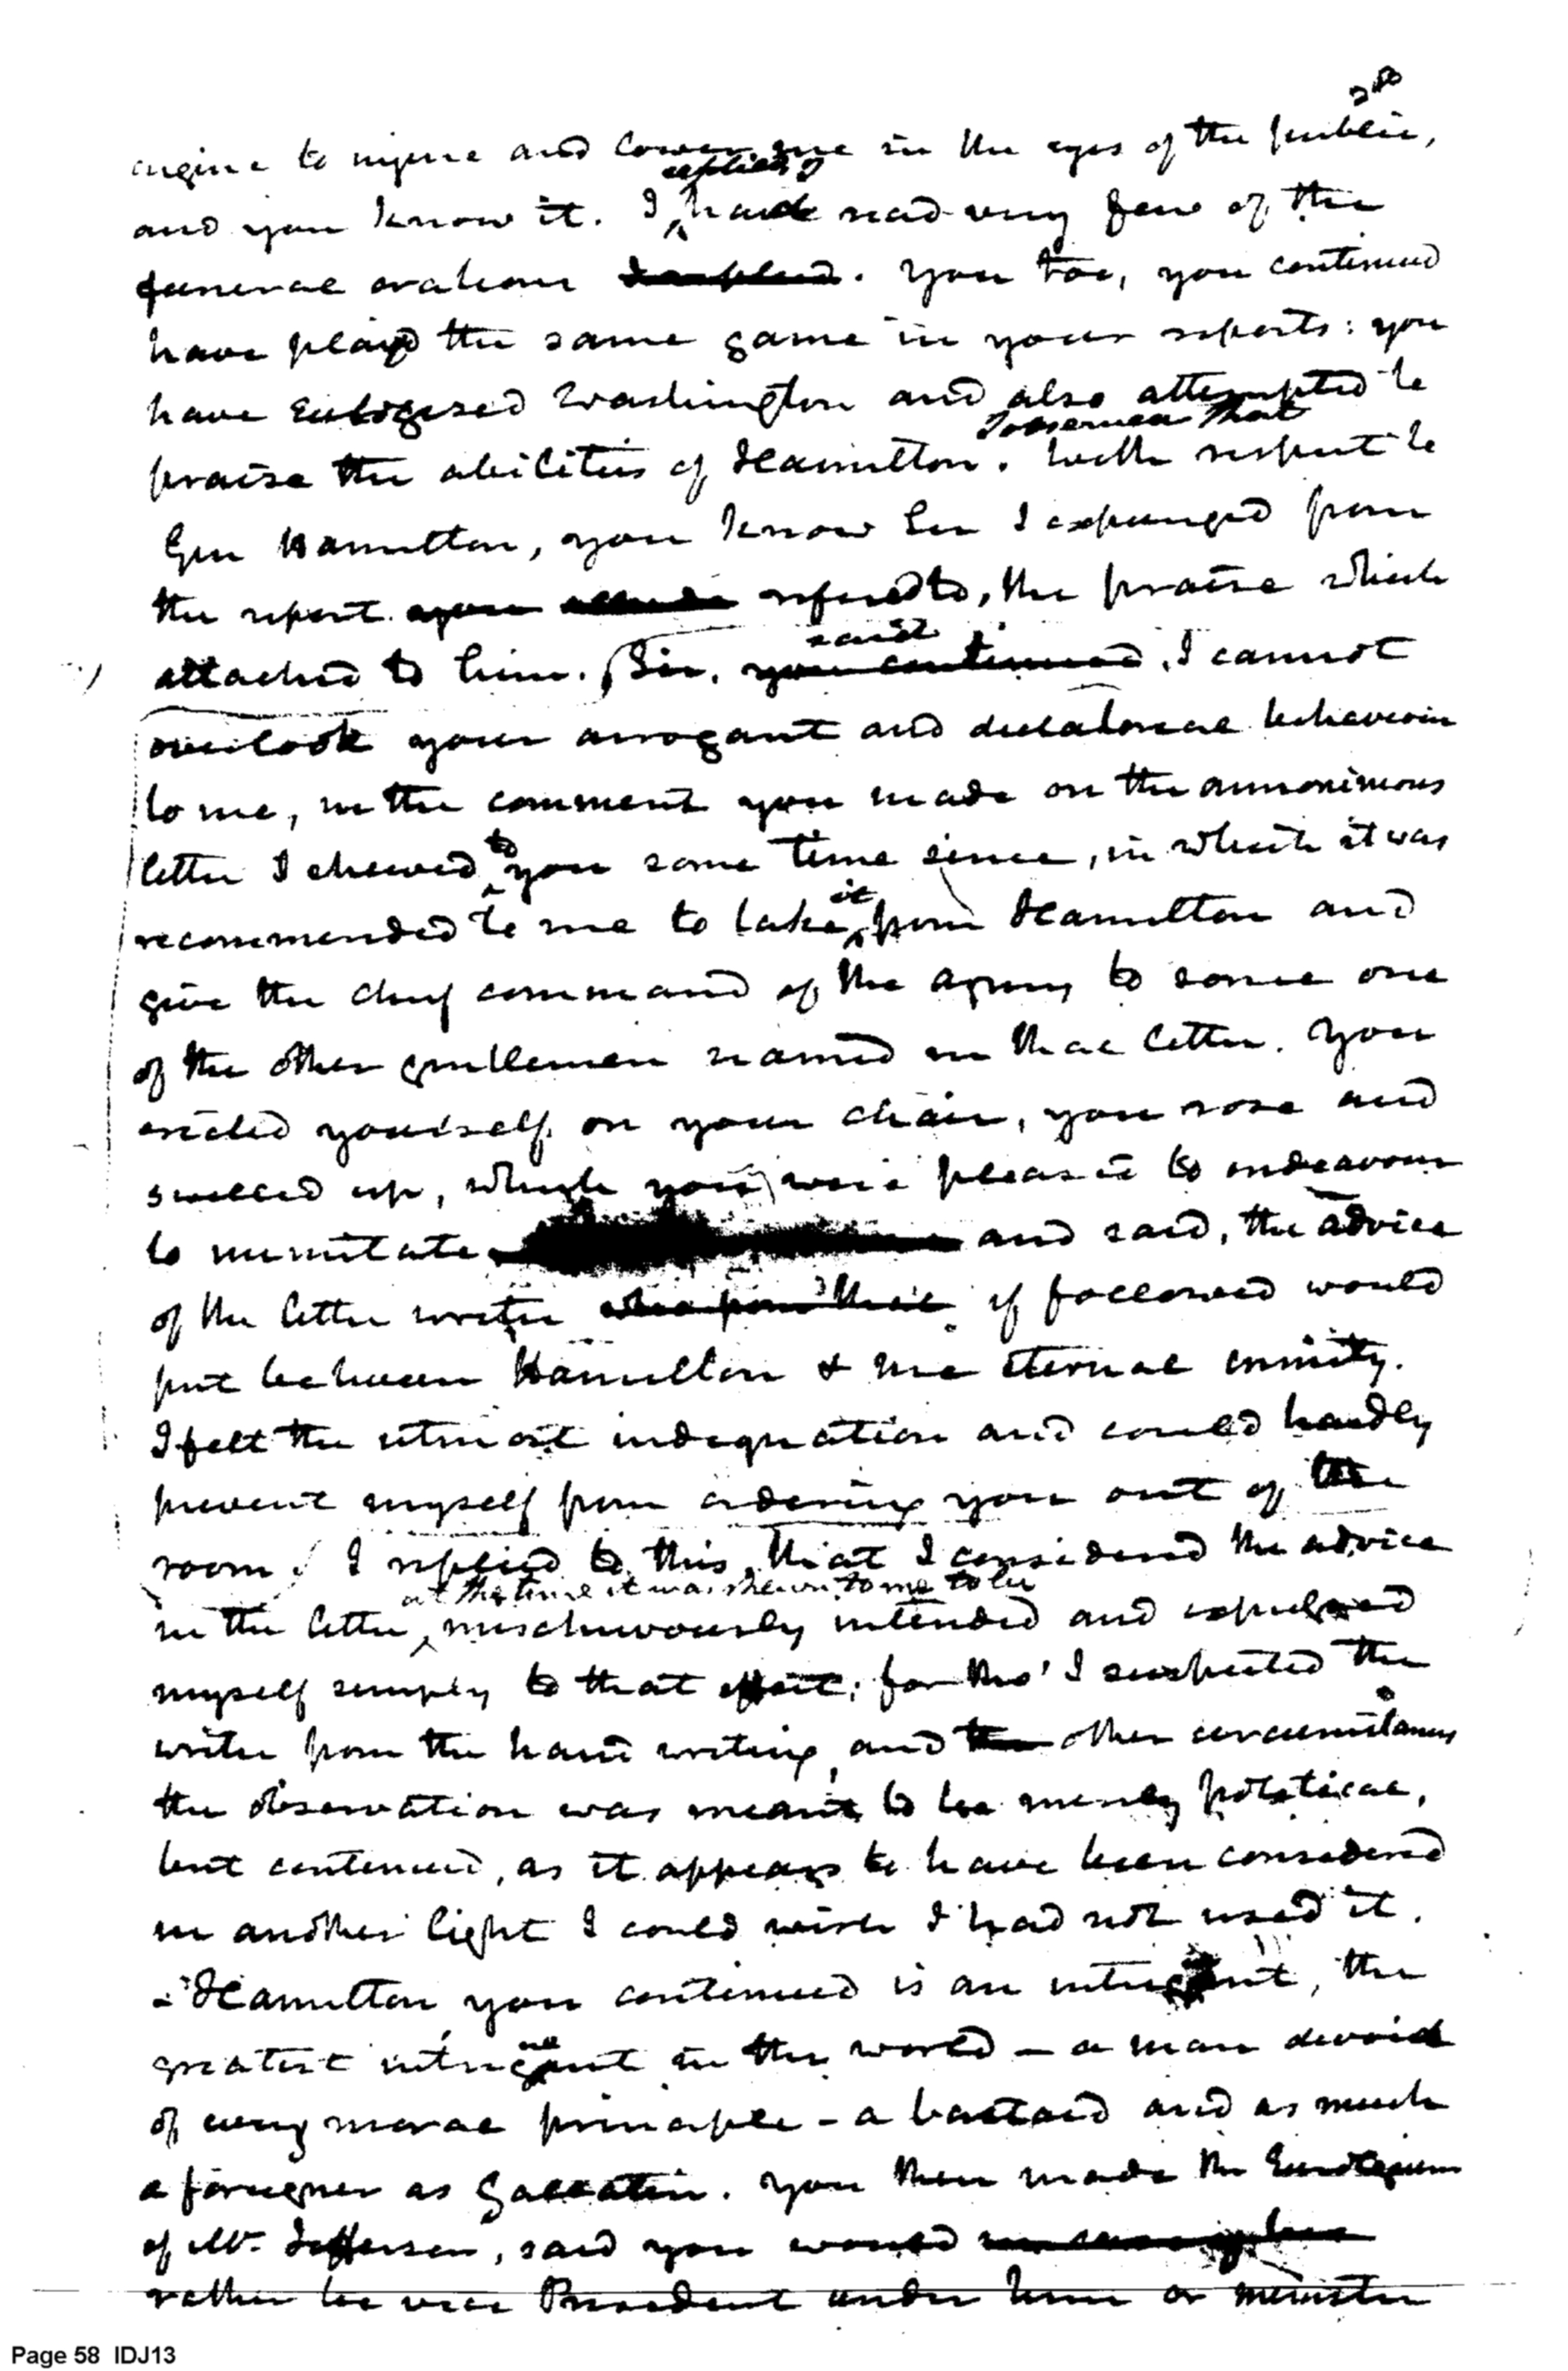 2d
engine to injure and lower me in the eyes of the public,
replied I
and you know it. I have read very few of the
funeral orations I replied. You too, you continued
have played the same game in your reports: you
have eulogized Washington and also attempted to
I observed that
praise the abilities of Hamilton. With respect to
Gen Hamilton, you know Sir I expunged from
the report you allude refered to, the praise which
said
attached to him. Sir, you continued, I cannot
overlook your arrogant and dictatorial behaviour
to me, in the comment you made on the annonimous
letter I shewed to you some time since, in which it was
it
recommended to me to take from Hamilton and
give the chief command of the army to some one
of the other gentlemen named in that letter. You
erected yourself on your chair, you rose and
swelled up, which you were pleased to endeavour
to immitate and said, the advice
of the letter writer if followed would
put between Hamilton & me eternal enmity.
I felt the utmost indegnation and could hardly
prevent myself from ordering you out of the
room. I replied to this, that I considered the advice
at the time it was shewn to me to be
in the letter, mischievously intended and expressed
myself simply to that effect; for tho' I suspected the
writer from the hand writing, and the other circumstances
the observation was meant to be merely political,
but continued, as it appears to have been considered
in another light I could wish I had not used it.
- Hamilton you continued is an intriguant, the
greatest intriguant in the world - a man devoid
of every moral principle - a bastard and as much
a foreigner as Gallatin. You then made the Eurologium
of Mr. Jefferson, said you would
rather be vice President under him or minister
Page 58 IDJ13